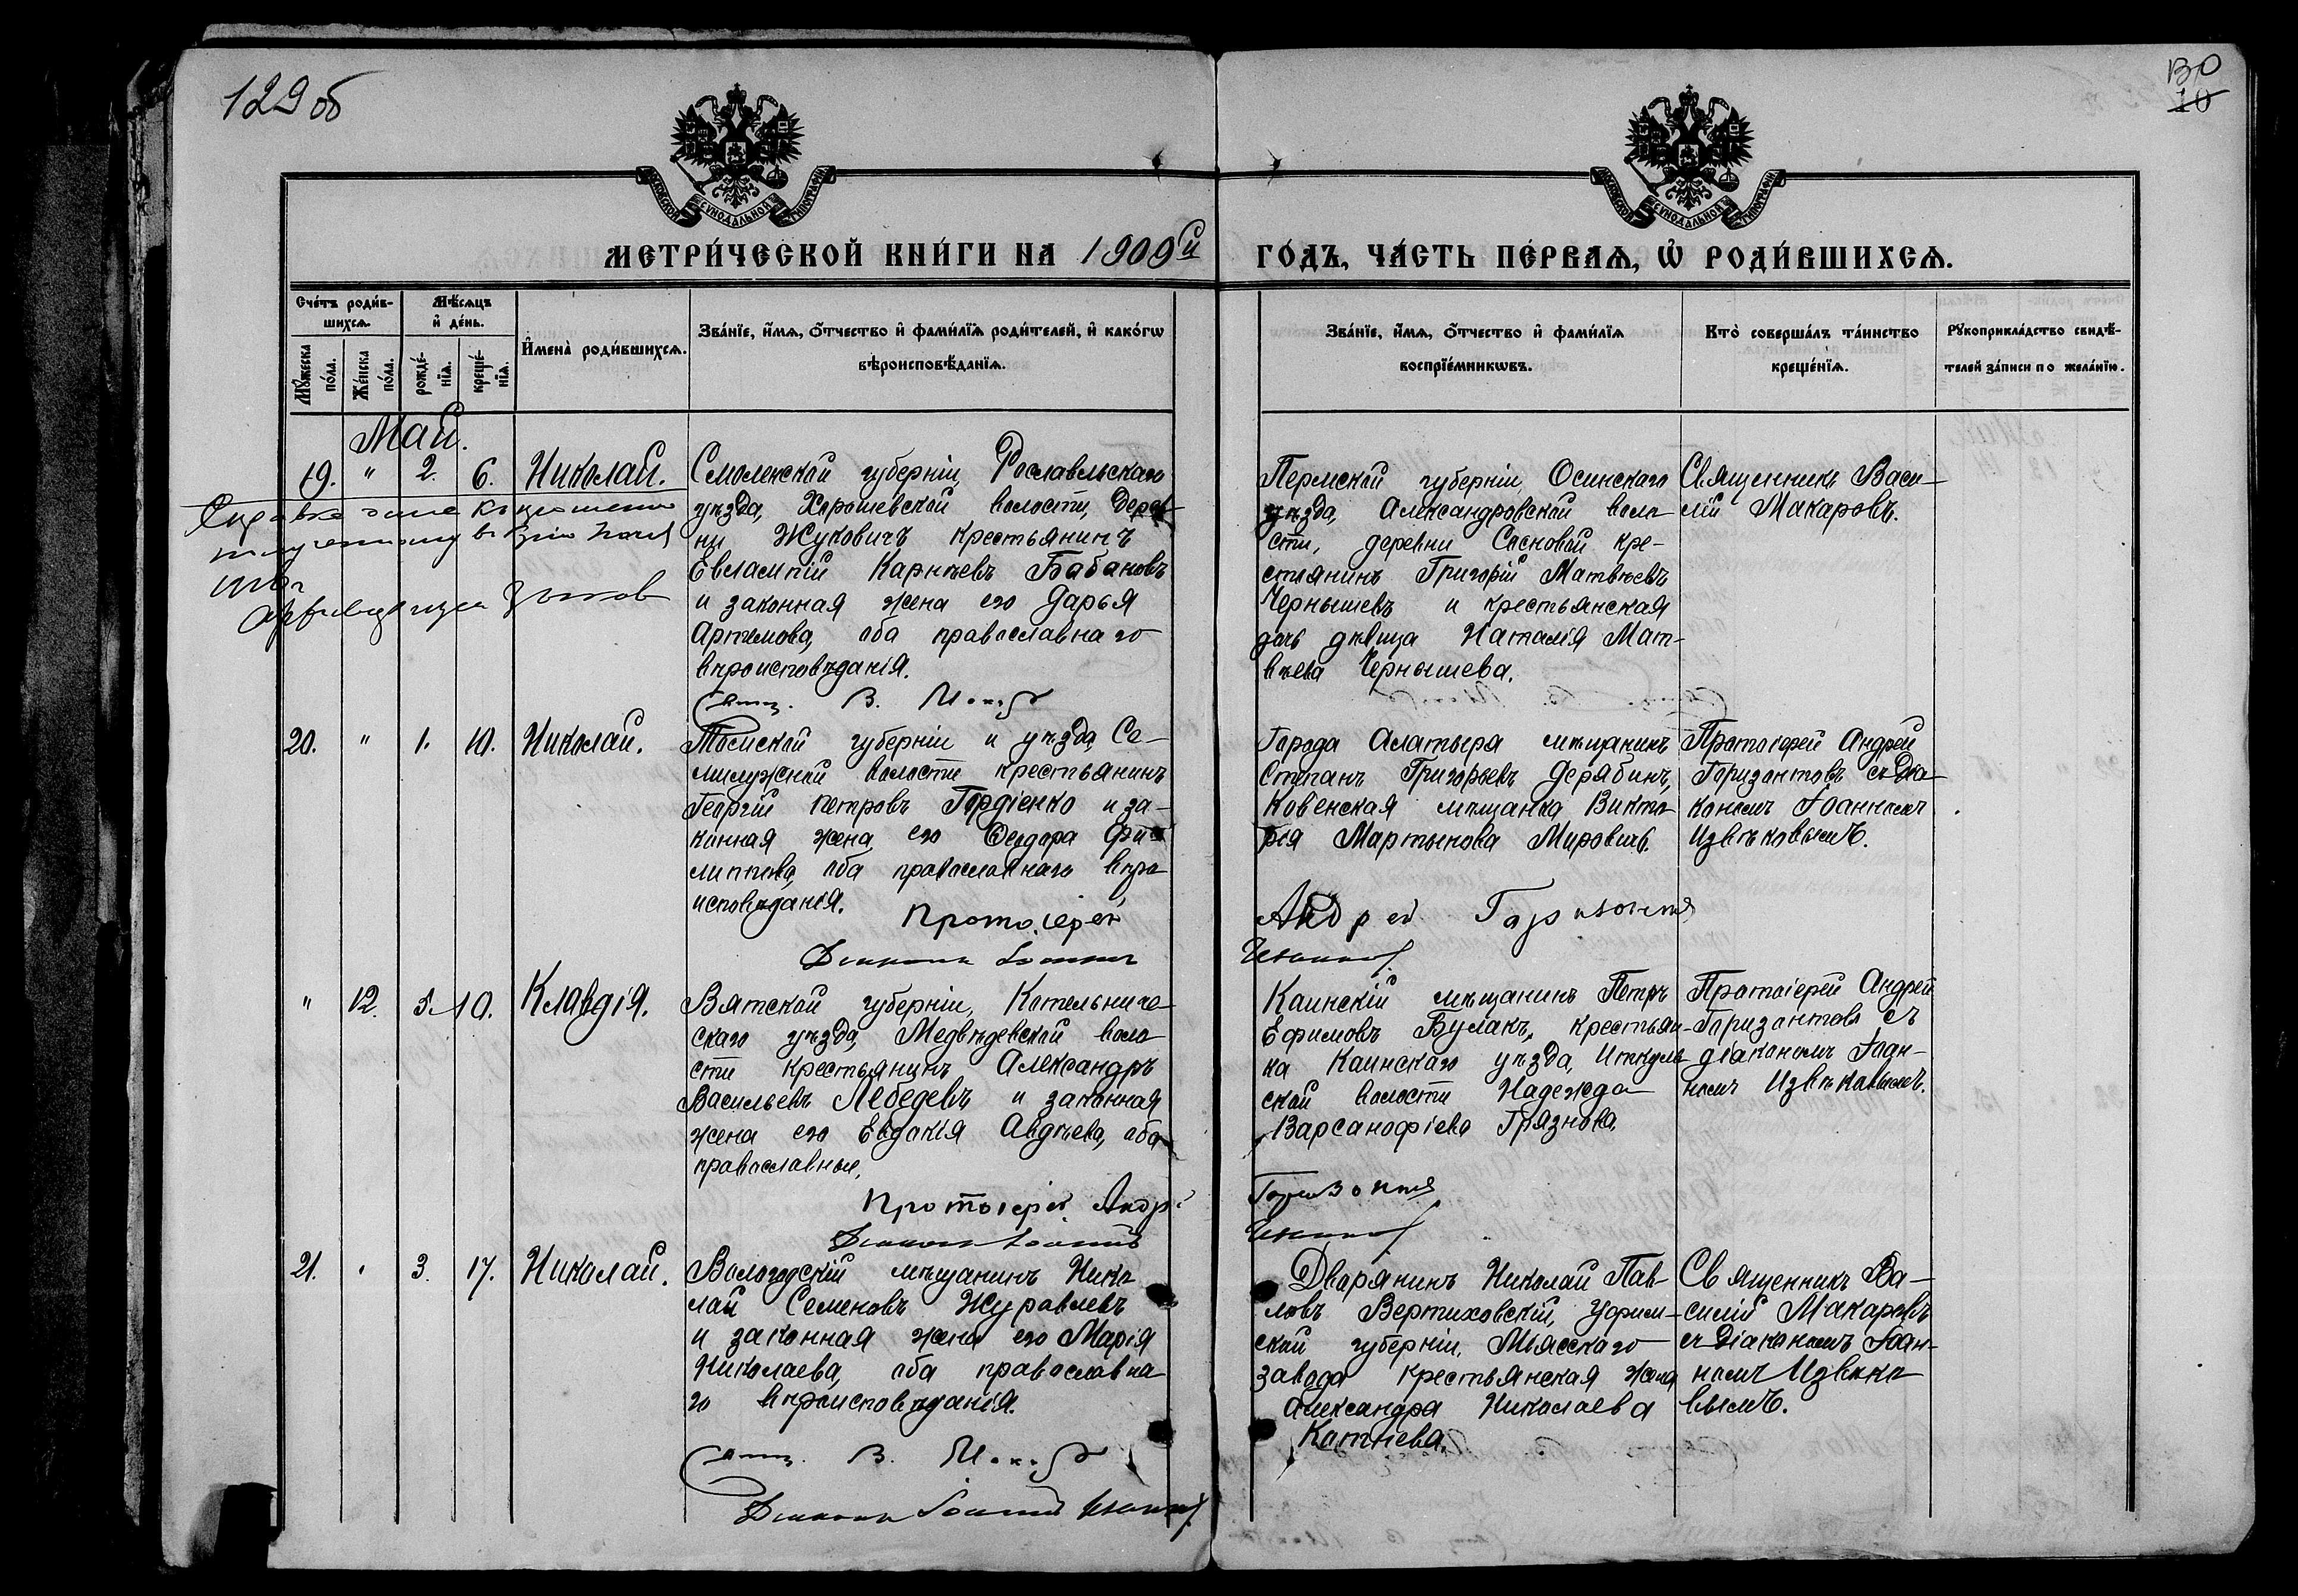 129 об
130
10
МОСКОВСКОЙ СѴНОДАЛЬНОЙ ТИПОГРАФІИ
МОСКОВСКОЙ СѴНОДАЛЬНОЙ ТИПОГРАФІИ
МЕТРИ́ЧЕСКОЙ КНИ́ГИ НА 1909й ГО́ДЪ, ЧА́СТЬ ПЕ́РВАѦ, Ѡ҆ РОДИ́ВШИХСѦ.
Сче́тъ роди́в-
шихсѧ.
Мѣ́сѧцъ
и҆ де́нь.
Мꙋ́жеска
по́ла.
Же́нска
по́ла.
рожде́-
нїѧ.
креще́-
нїѧ.
И҆мена̀ роди́вшихсѧ.
Зва́нїе, и҆́мѧ, ѻ҆́тчество и҆ фами́лїѧ роди́телей, и҆ како́гѡ
вѣроисповѣ́данїѧ.
Зва́нїе, и҆́мѧ, ѻ҆́тчество и҆ фами́лїѧ
воспрїе́мникѡвъ.
Кто̀ соверша́лъ та́инство
креще́нїѧ.
Рꙋкоприкла́дство свидѣ́-
телей за́писи по жела́нїю.
Май.
19. " 2. 6. Николай.
Смоленской губерніи, Рославльскаго
уѣзда, Хорошевской волости, дерев-
ни Жуковичъ крестьянинъ
Евлампій Карпѣевъ Бабановъ
и законная жена его Дарья
Артемова, оба православнаго
вѣроисповѣданія.
Свящ. В. Макар
Пермской губерніи, Осинскаго
уѣзда, Александровской воло-
сти, деревни Сосновой кре-
стьянинъ Григорій Матвѣевъ
Чернышевъ и крестьянская
дочь дѣвица Наталія Мат-
вѣева Чернышева.
Священникъ Васи-
лій Макаровъ.
20. " 1. 10. Николай.
Томской губерніи и уѣзда, Се-
милужной волости крестьянинъ
Георгій Петровъ Гордіенко и за-
конная жена его Ѳеодора Фи-
липпова, оба православнаго вѣро-
исповѣданія.
Протоіерей
Діаконъ Іоаннъ
Города Алатыря мѣщанинъ
Степанъ Григорьевъ Дерябинъ,
Ковенская мѣщанка Викто-
рія Мартынова Мировичъ.
Андрей Горизонтов
Протоіерей Андрей
Горизонтовъ съ Діа-
кономъ Іоанномъ
Извѣковымъ.
" 12. 5. 10. Клавдія.
Вятской губерніи, Котельниче-
скаго уѣзда, Медвѣдевской воло-
сти крестьянинъ Александръ
Васильевъ Лебедевъ и законная
жена его Евдокія Авдѣева, оба
православные.
Протоіерей Андр
Діаконъ Іоаннъ
Каинскій мѣщанинъ Петръ
Ефимовъ Булакъ, крестьян-
ка Каинскаго уѣзда, Иткуль-
ской волости Надежда
Варсанофіева Грязнова.
Горизонтов
Протоіерей Андрей
Горизонтовъ съ
діакономъ Іоан-
номъ Извѣковымъ.
21. " 3. 17. Николай.
Вологодскій мѣщанинъ Нико-
лай Семеновъ Журавлевъ
и законная жена его Марія
Николаева, оба православна-
го вѣроисповѣданія.
Свящ. В. Макар
Діаконъ Іоаннъ
Дворянинъ Николай Пав-
ловъ Вертиховскій, Уфим-
ской губерніи, Міясскаго
завода крестьянская жена
Александра Николаева
Котнева.
Священникъ Ва-
силій Макаровъ
съ Діакономъ Іоан-
номъ Извѣко-
вымъ.